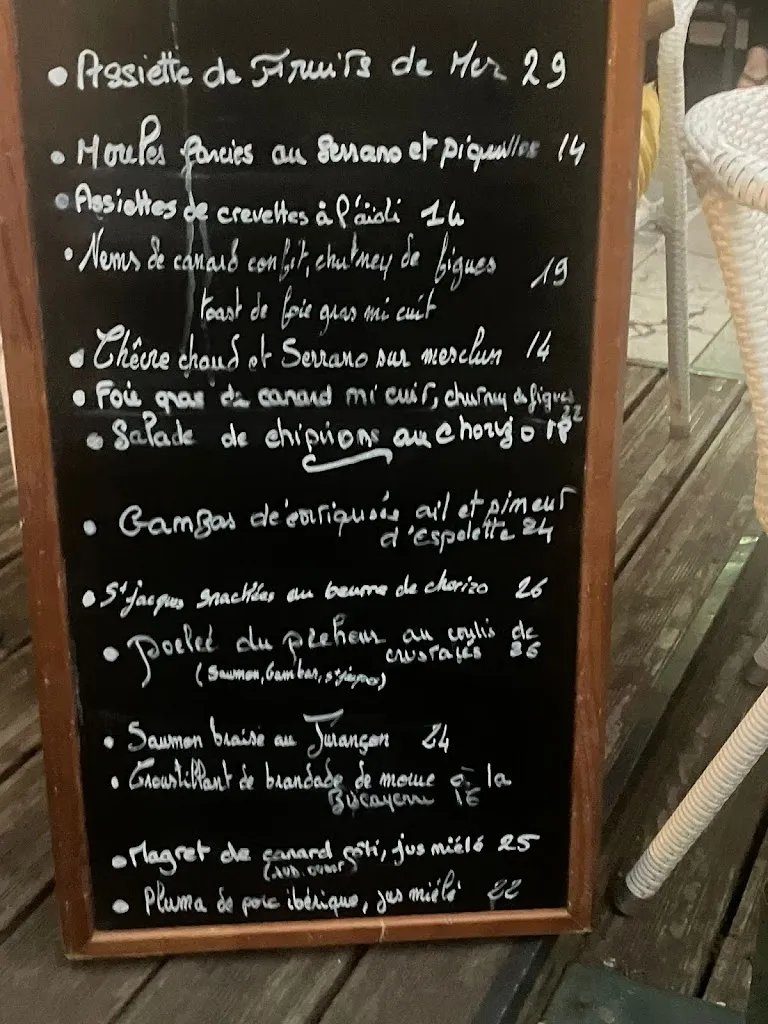 • Assiette de Fruits de Mer 29
• Moules farcies au Serrano et piquillos 14
• Assiettes de crevettes à l'aïoli 14
• Nems de canard confit, chutney de figues 19
toast de foie gras mi cuit
• Chèvre chaud et Serrano sur mesclun 14
• Foie gras de canard mi cuit, chutney de figues 22
• Salade de chipirons au chorizo
• Gambas décortiquées ail et piment
d'espelette 24
• St jacques snackées au beurre de chorizo 26
• poelée du pêcheur au coulis de
crustacés 26
(Saumon, Gambas, st jacques)
• Saumon braisé au Jurançon 24
• Croustillant de brandade de morue à la
Biscayenne 16
• Magret de canard rôti, jus miélé 25
• Pluma de porc ibérique, jus miélé 22